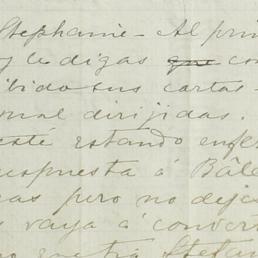 Stephanie - Al prin
y le digas que con
ibido sus cartas -
onal dirijidas.
esté estando enfer
respuesta á Bâle
as pero no deje
s vaya á convert
Stefan